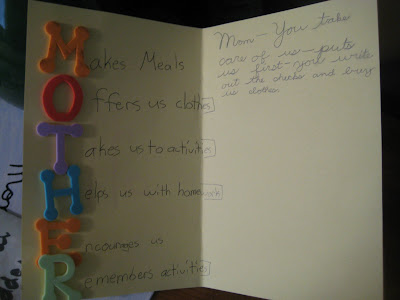 Makes Meals
Offers us clothes
Takes us to activities
Helps us with homework
Encourages us
Remembers activities
Mom - You take
care of us - puts
us first - you write
out the checks and buy
us clothes.